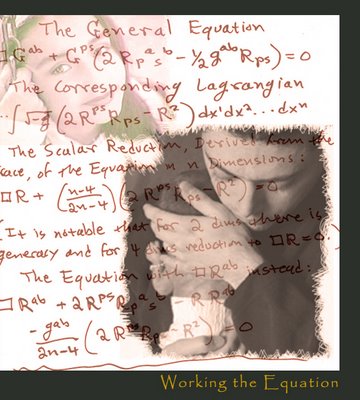 The General Equation
□G^ab + G^ps (2 R_p^a_s^b - ½ g^ab R_ps) = 0
The Corresponding Lagrangian
∫√-g (2 R^ps R_ps - R²) dx¹dx²...dxⁿ
The Scalar Reduction, Derived from the
race, of the Equation in n Dimensions:
□R + (n-4/2n-4)(2 R^ps R_ps - R²) = 0
[It is notable that for 2 dims there is
generacy and for 4 dims reduction to □R=0.]
The Equation with □R^ab instead:
□R^ab + 2R^ps R_p^a_s^b - R R^ab
- g^ab/2n-4 (2 R^ps R_ps - R²) = 0
Working the Equation